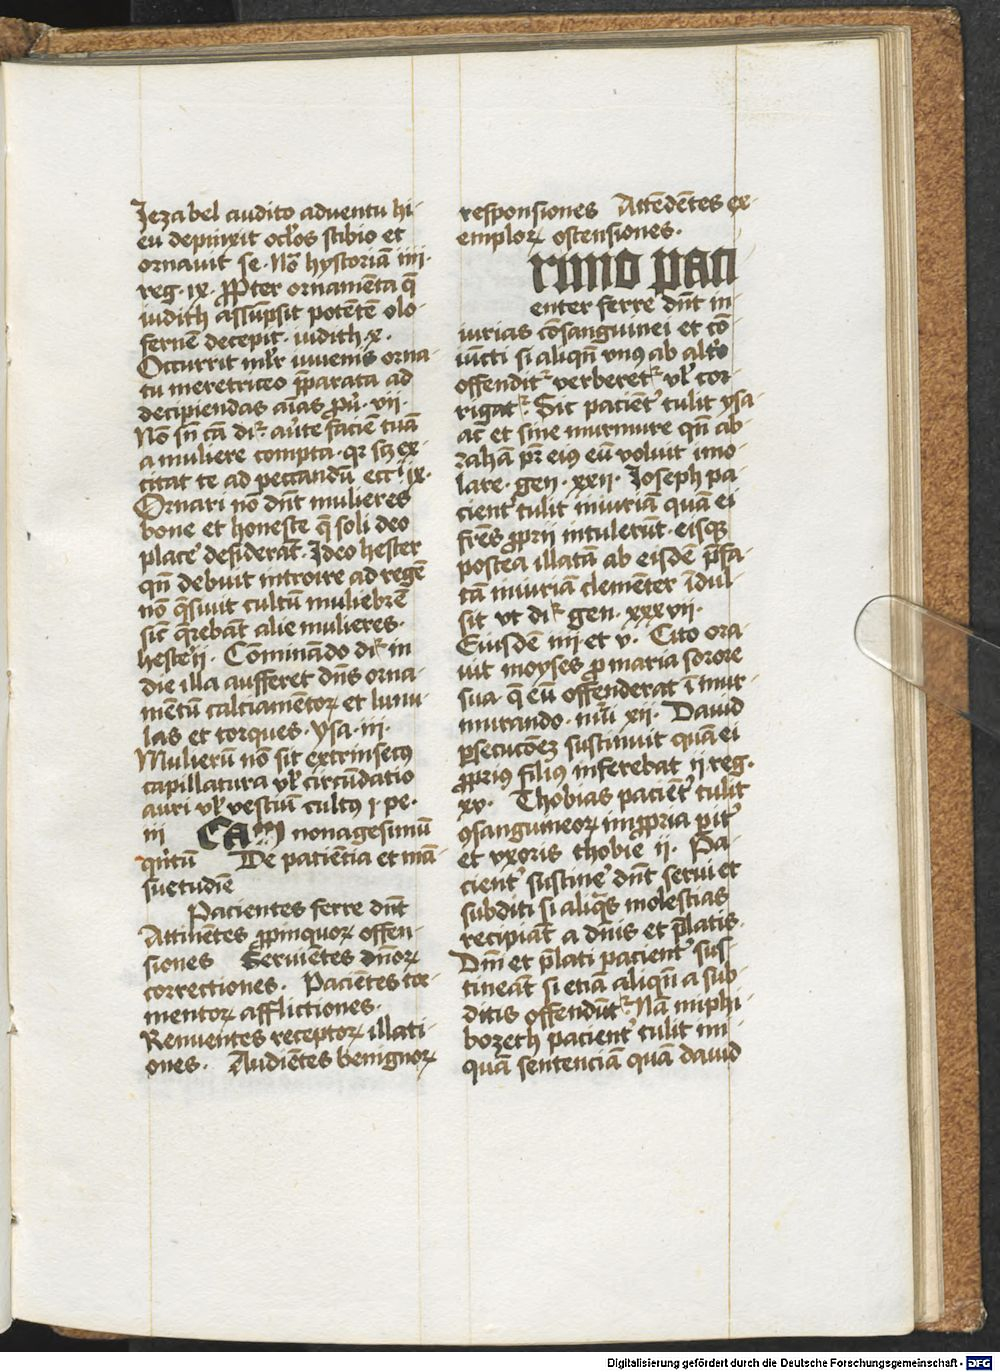 Jezabel audito adventu hi-
eu depinxit oclos stibio et
ornauit se. Nō hystoriā iiii.
reg. ix. ꝓpter ornamēta q̄
iudith assūpsit potētē olo-
fernē decepit. iudith. x.
Occurrit mlr iuuenis orna-
tu meretriceo p̄parata ad
decipiendas aīas ꝓu. vii.
Nō sn̄ cā dr̄. auīte faciē tuā
a muliere compta. qr sꝫ ex-
citat te ad peccandū ecc ix.
Ornari nō dn̄t mulieres
bone et honeste q̄ soli deo
place' desiderāt. Ideo hester
qn̄ debuit introire ad regē
nō q̄siuit cultū muliebrē
sic̄ q̄rebāt alie mulieres.
heste' ii. Cōminādo dr̄ in
die illa aufferet dn̄s orna-
mētū calciamētoꝝ et lunu-
las et torques. ysa. iii.
Mulierū nō sit extrinsecꝰ
capillatura vl' circūdatio
auri vl' vestiū cultꝰ i. pe.
iii Cam nonagesimū
qn̄tū De patiētia et mā-
suetudīe
Pacientes ferre dn̄t
Attinētes ꝓpinquoꝝ offen-
siones Seruiētes dn̄oꝝ
correctiones. Paciētes tor-
mentoꝝ afflictiones.
Renuentes receptoꝝ illati-
ones. Audiētes benignoꝝ
responsiones Attēdētes ex-
emploꝝ ostensiones.
rimo paci
enter ferre dn̄t in-
iurias cōsanguinei et cō-
iūcti si aliqn̄ vnꝰ ab alt'o
offendit' verberet' vl' cor-
rigat'. Sic pacient' tulit ysa-
ac et sine murmure qn̄ ab-
raham pr̄ eiꝰ eū voluit imo-
lare. gen. xxii. Joseph pa-
cient' tulit iniuriā quā ei
fr̄es ꝓprii intulerūt. eisqꝫ
postea illatā ab eisdē p̄fa-
tā iniuriā clemēter īdul-
sit vt dr̄ gen. xxxvii.
Eiusdē iiii et v. Cito ora-
uit moyses ꝓ maria sorore
sua. q̄ eū offenderat ī mur-
murando. nūi xii. Dauid
ꝑsecucōeꝫ sustinuit quā ei
ꝓpriꝰ filiꝰ inferebat ii reg.
xv. Thobias pacient' tulit
ꝯsanguineoꝝ
et vxoris thobie ii. Pa-
cient' sustine' dn̄t serui et
subditi si aliqs̄ molestias
recipiāt a dn̄is et p̄latis.
Dn̄i et p̄lati pacient' sus-
tineāt si etiā aliqn̄ a sub-
ditis offendūt'. Nā miphi-
bozeth pacient' tulit ini-
quā sentenciā quā dauid
Digitalisierung gefördert durch die Deutsche Forschungsgemeinschaft - DFG